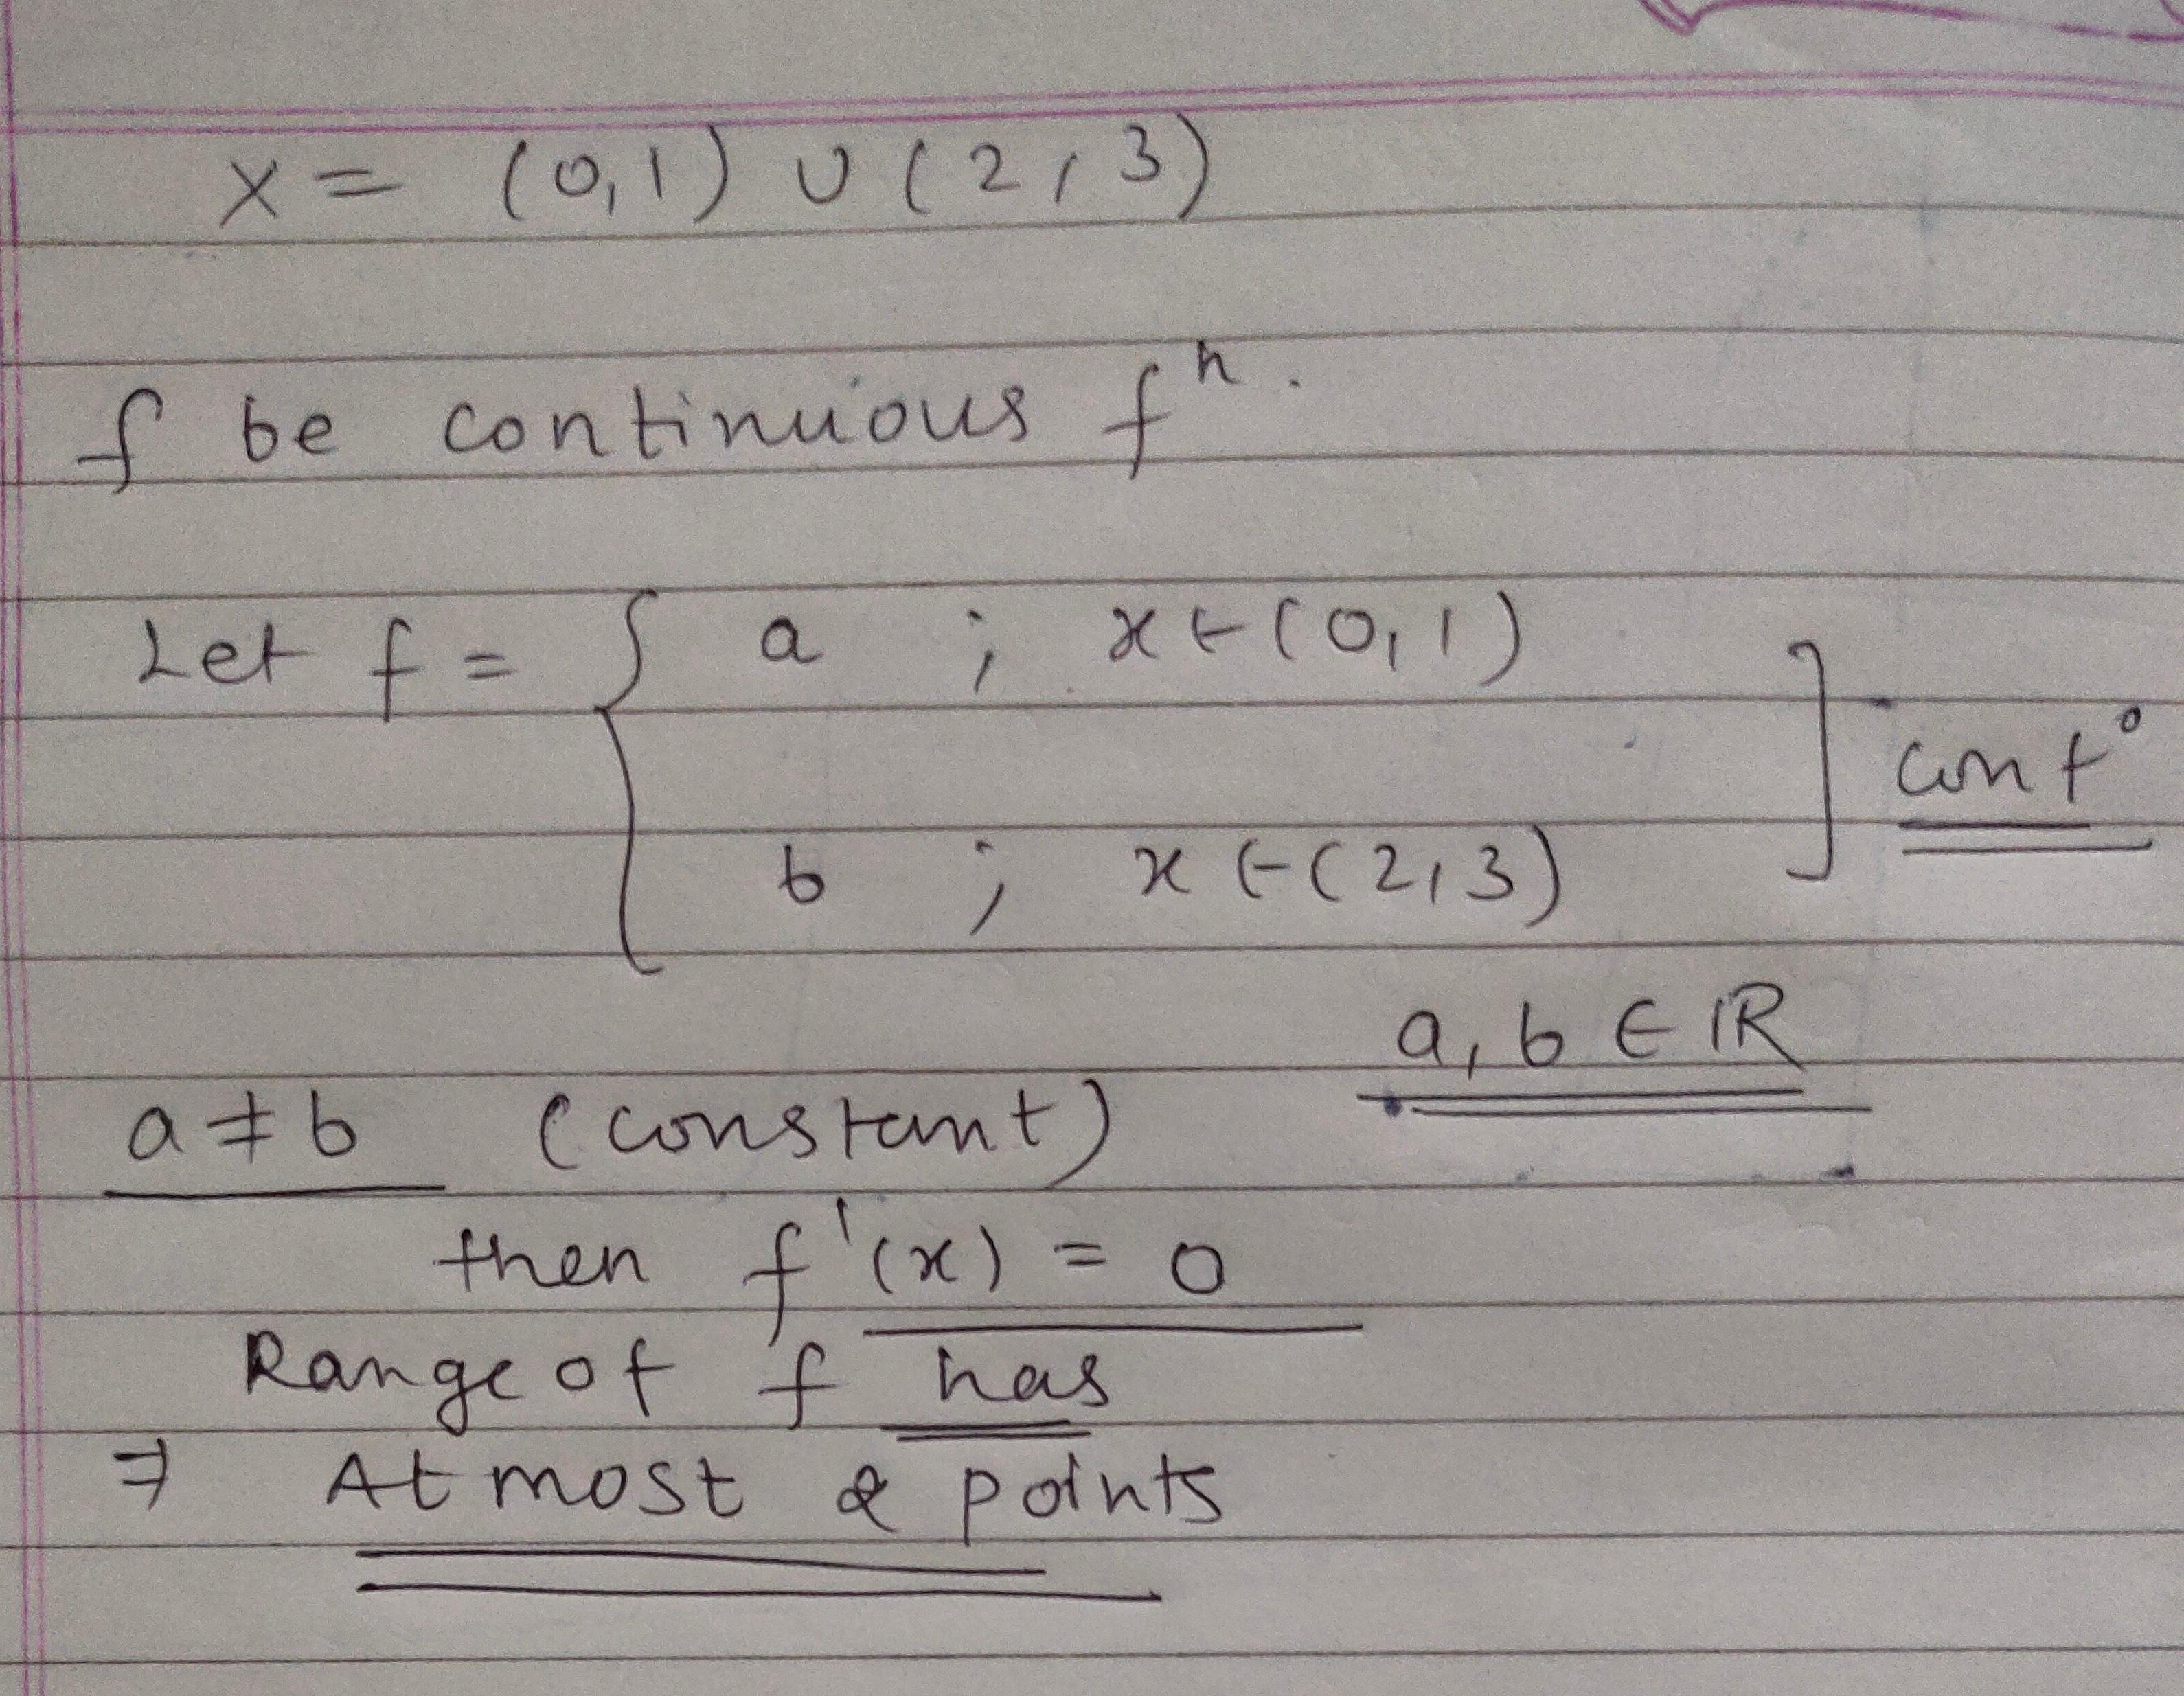 X = (0,1) ∪ (2,3)
f be continuious fⁿ.
Let f = { a ; x ∈ (0,1)
b ; x ∈ (2,3) ] cont°
a, b ∈ ℝ
a ≠ b (constant)
then f'(x) = 0
Range of f has
⇒ At most 2 points